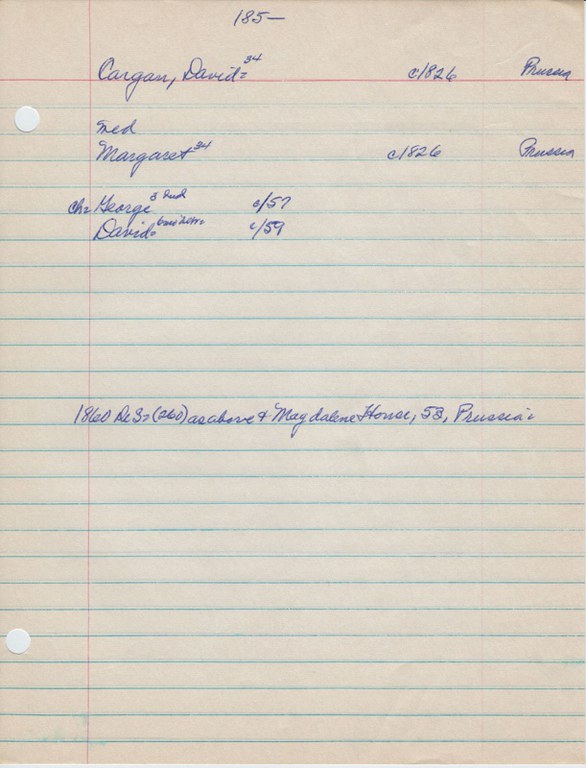 185—
Cargan, David= 34 c/1826 Prussia
med
Margaret 34 c/1826 Prussia
Ch: George 3 Ind c/57
David= 6 c/59
1860 De3= (260) as above + Magdalene House, 53, Prussia=